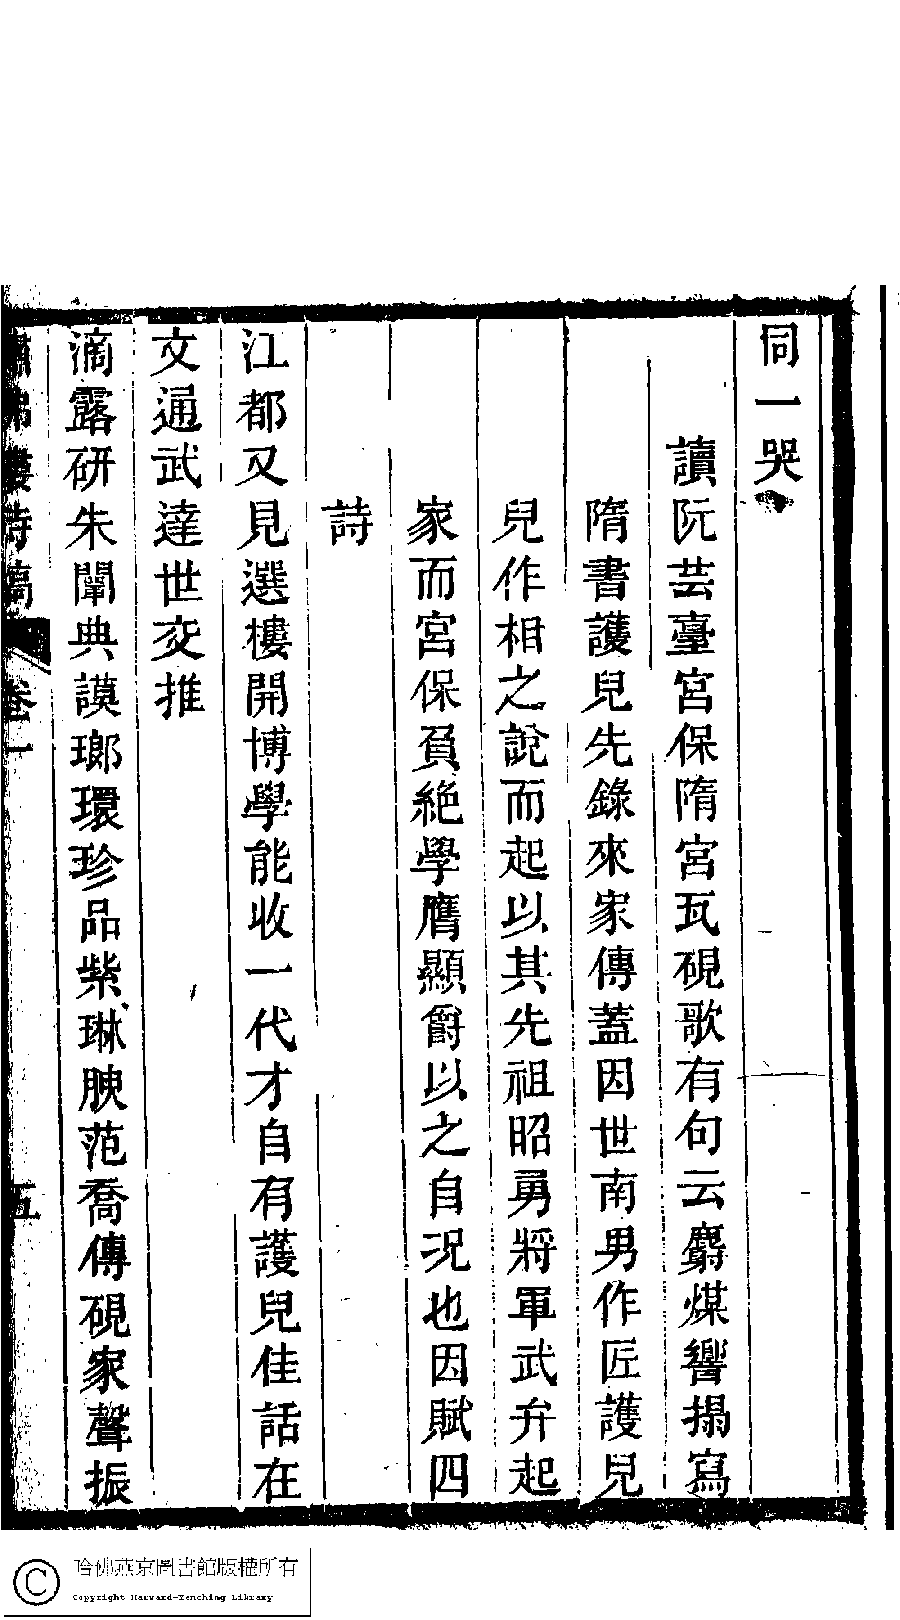 同一哭
讀阮芸臺宮保隋宮瓦硯歌有句云麝煤響搨寫
隋書護兒先錄來家傳蓋因世南男作匠護兒
兒作相之說而起以其先祖昭勇將軍武弁起
家而宮保負絶學膺顯爵以之自況也因賦四
詩
江都又見選樓開博學能收一代才自有護兒佳話在
文通武達世交推
滴露研朱闡典謨瑯環珍品紫琳腴范喬傳硯家聲振
繡佛樓詩稿
卷一
五
哈佛燕京圖書館版權所有
Copyright Harvard-Yenching Library